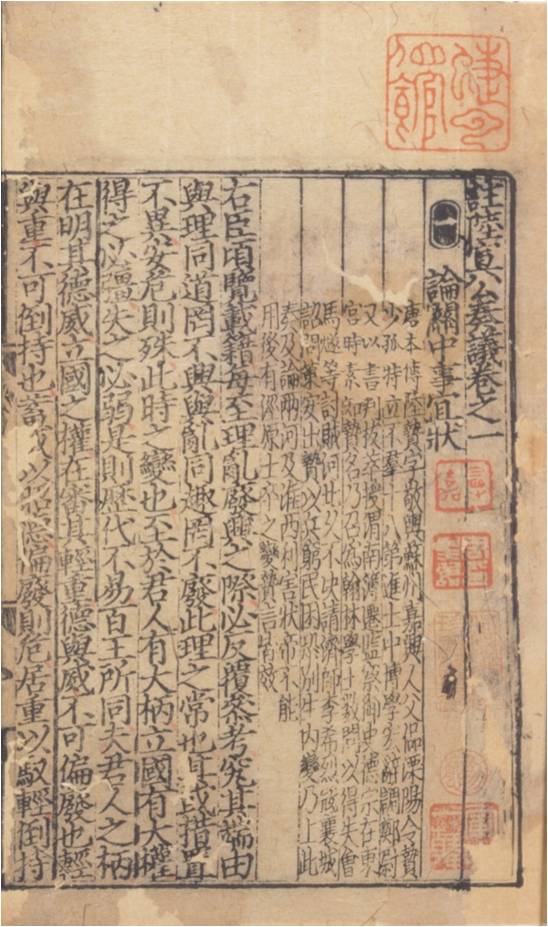 註陸宣公奏議卷之一
論關中事宜狀
唐本傳陸贄字敬輿蘇州嘉興人父侃溧陽令贄
少孤特立不羣十八第進士中博學宏辭調鄭尉
又以書判拔萃授渭南簿遷監察御史德宗在東
宮時素知贄名乃召為翰林學士數問以得失會
馬燧等討賊河北久不決請濟師李希烈寇襄城
詔問策安出贄以兵窮民困恐別生內變乃上此
奏及論兩河及淮西利害狀帝不能
用後有涇原士卒之變贄言皆效
右臣頃覽載籍每至理亂廢興之際必反覆叅考究其端由
與理同道罔不興與亂同趣罔不廢此理之常也其或措置
不異安危則殊此時之變也至於君人有大柄立國有大權
得之必彊失之必弱是則歷代不易百王所同夫君人之柄
在明其德威立國之權在審其輕重德與威不可偏廢也輕
與重不可倒持也蓄威以昭德偏廢則危居重以馭輕倒持